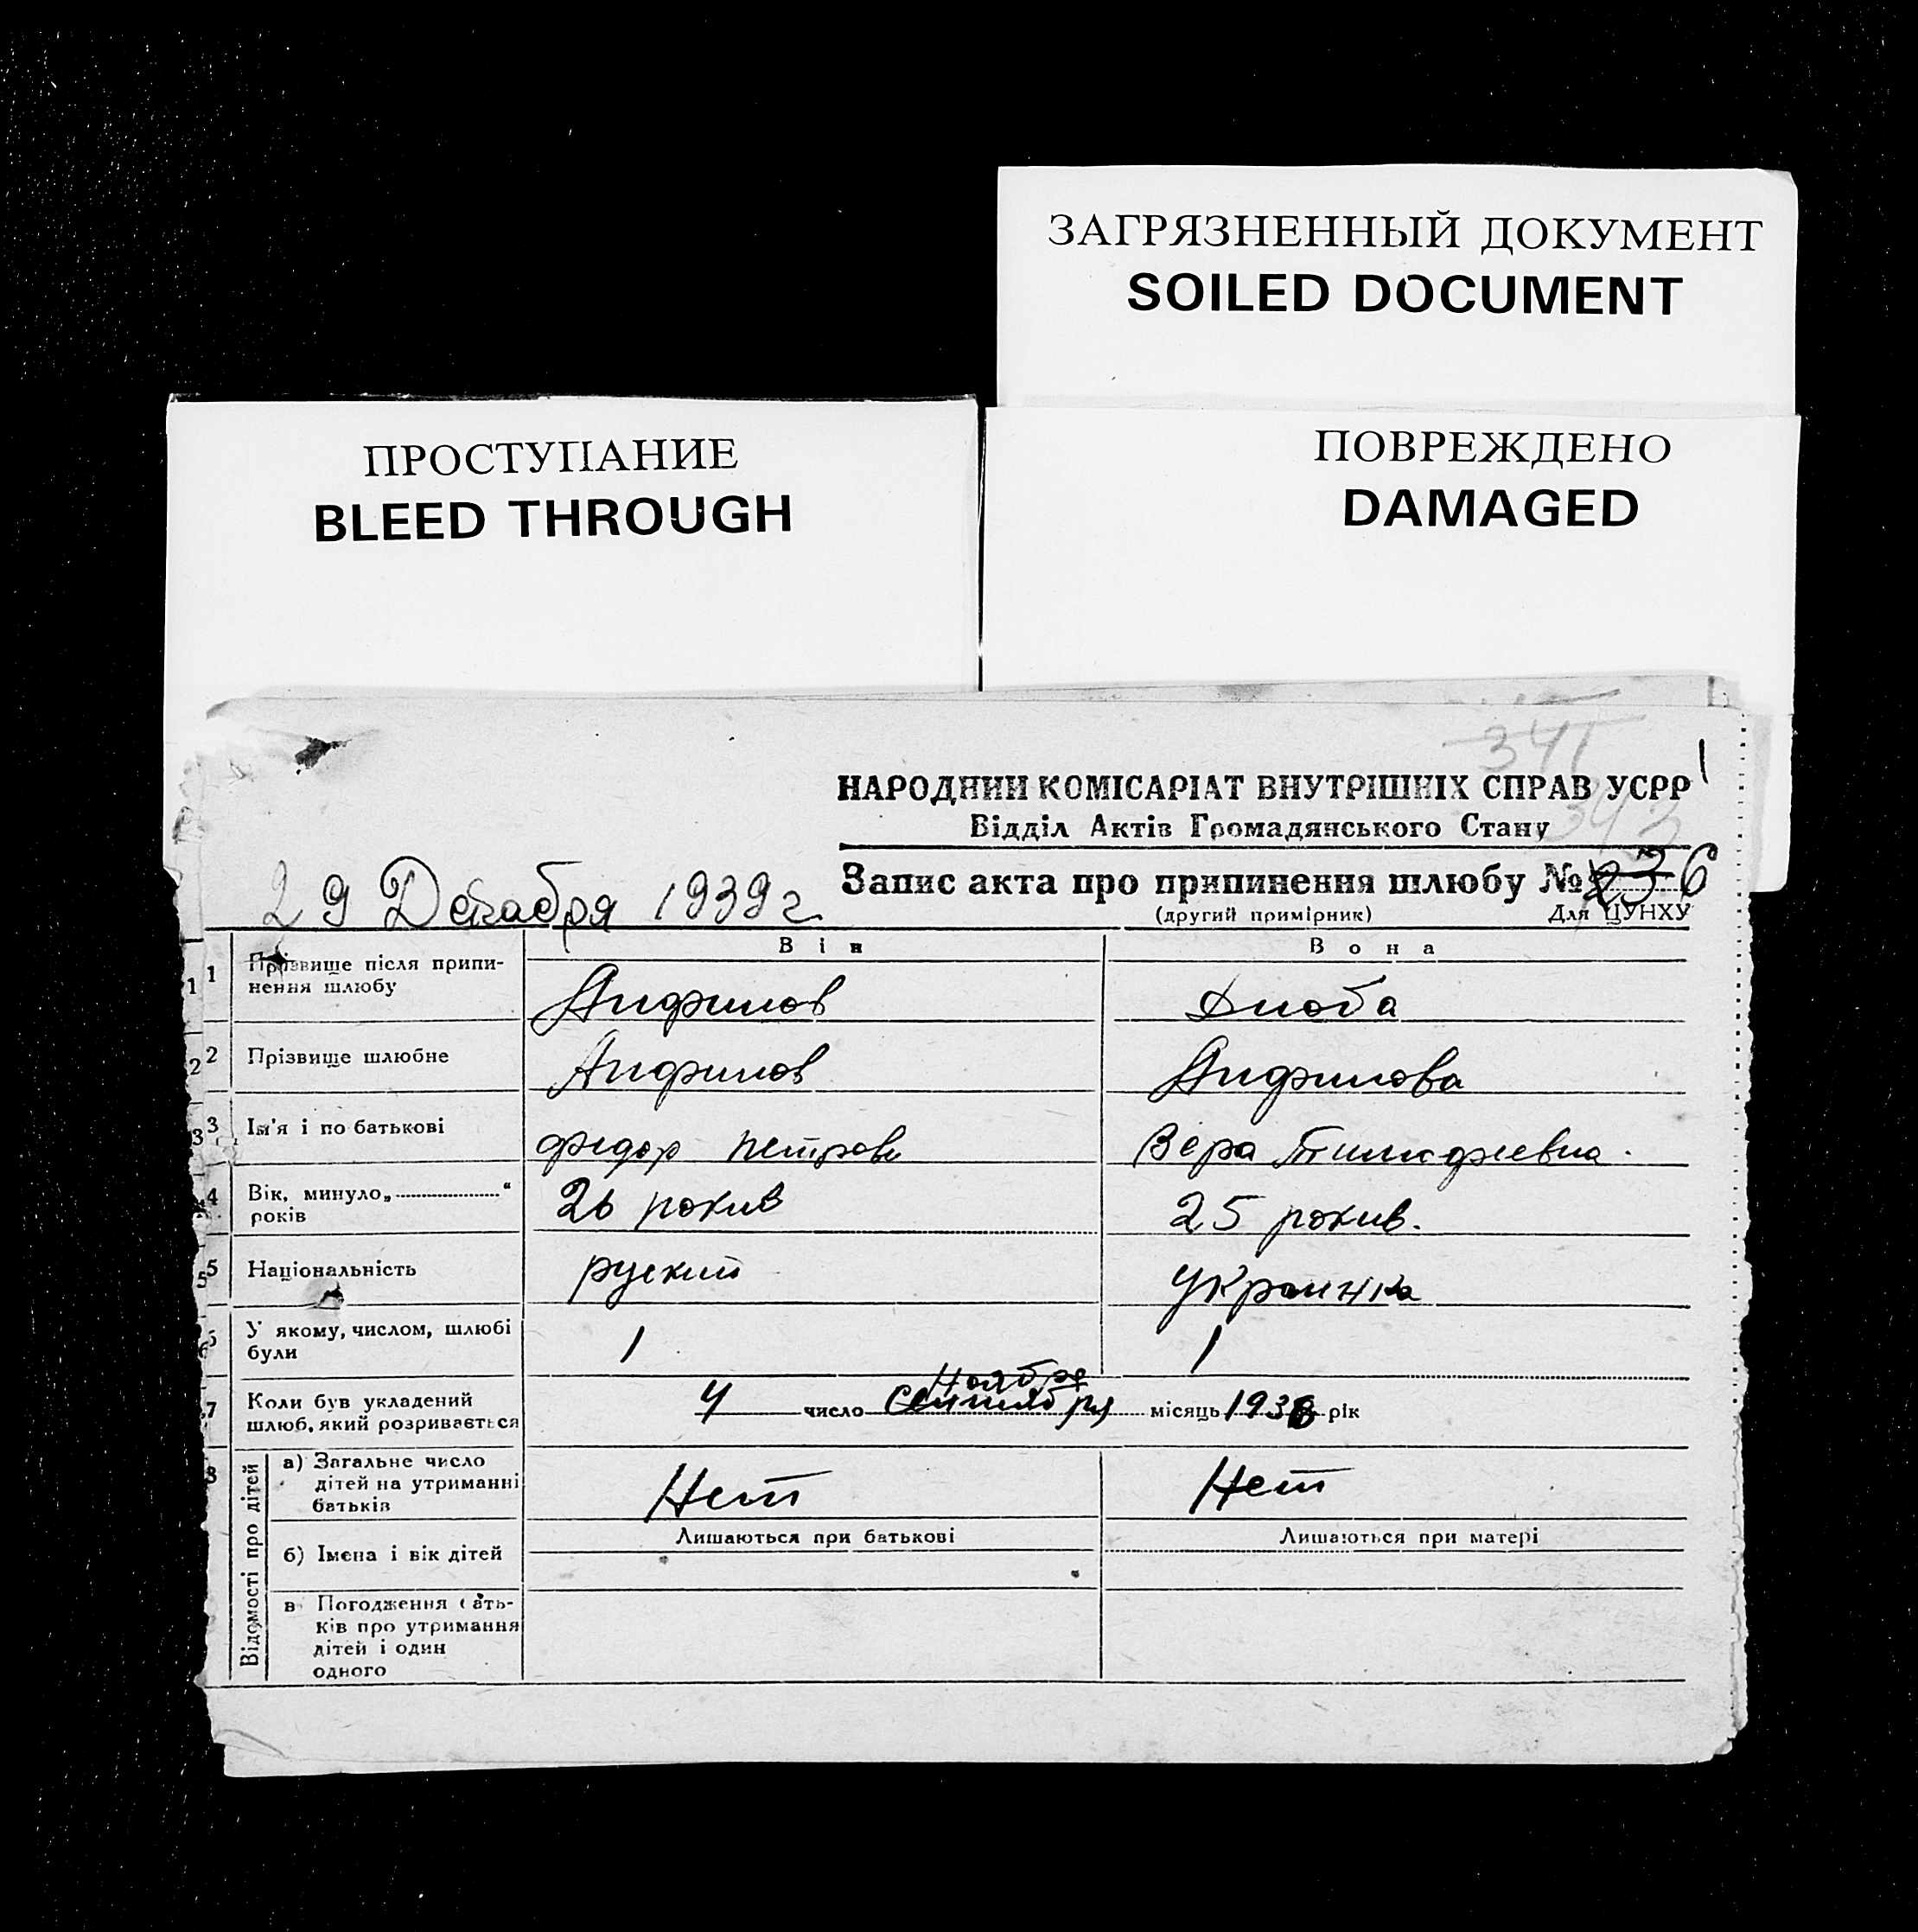 ЗАГРЯЗНЕННЫЙ ДОКУМЕНТ
SOILED DOCUMENT
ПРОСТУПАНИЕ
BLEED THROUGH
ПОВРЕЖДЕНО
DAMAGED
341
1
НАРОДНИЙ КОМІСАРІАТ ВНУТРІШНІХ СПРАВ УСРР
Відділ Актів Громадянського Стану
343
29 Декабря 1939 г.
Запис акта про припинення шлюбу № 6
(другий примірник) Для ЦУНХУ
Він Вона
1 1 Прізвище після припи-
нення шлюбу
Анфилов Дзюба
2 2 Прізвище шлюбне Анфилов Анфилова
3 3 Ім'я і по батькові Федор Петров Вера Тимофеевна.
4 Вік, минуло „ “
років
26 рокив 25 рокив.
5 5 Національність руский Украинка
6 У якому, числом, шлюбі
були
1 1
Ноября
7 Коли був укладений
шлюб, який розривається
4 число Сентября місяць 1938 рік
8 Відомості про дітей
а) Загальне число
дітей на утриманні
батьків
Нет Нет
Лишаються при батькові Лишаються при матері
б) Імена і вік дітей
в Погодження бать-
ків про утримання
дітей і один
одного